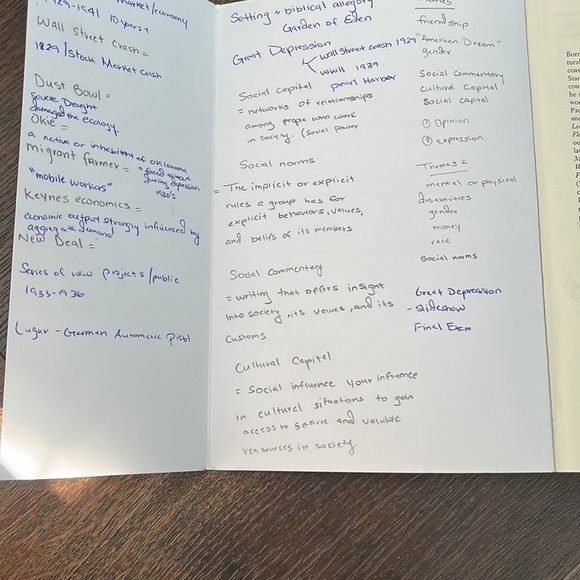 1929-1941 10 years
market/economy
Wall Street Crash =
1829 / Stock Market Crash
Dust Bowl =
Severe Drought
damaged the ecology
Okie =
a native or inhabitant of Oklahoma
migrant farmer =
during depression
1930's
"mobile workers"
Keynes economics =
economic output strongly influenced by
aggregate demand
New Deal =
Series of new projects/public
1933-1936
Lugur - German Automatic Pistol
Setting ~ biblical allegory
Garden of Eden
Great Depression
Wall Street crash 1929
WWII 1939
Pearl Harbor
Social capital
= networks of relationships
among people who work
in society. (Social power
Social norms
= The implicit or explicit
rules a group has for
explicit behaviors, values,
and beliefs of its members
Social Commentary
= writing that offers insight
into society, its values, and its
customs
Cultural Capital
= Social influence your influence
in cultural situations to gain
access to and valuable
reasources in society
friendship
"American Dream"
gender
Social commentary
cultural Capital
Social capital
① Opinion
② expression
Themes =
mental or physical
disabilities
gender
money
race
Social norms
Great Depression
- Slideshow
Final Exam